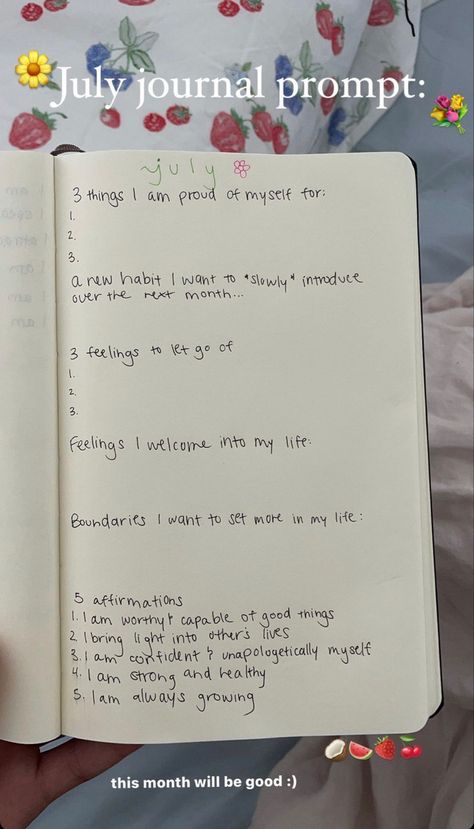 July journal prompt:
~july
3 things I am proud of myself for:
1.
2.
3.
a new habit I want to *slowly* introduce
over the next month...
3 feelings to let go of
1.
2.
3.
Feelings I welcome into my life:
Boundaries I want to set more in my life:
5 affirmations
1. I am worthy & capable of good things
2. I bring light into other's lives
3. I am confident & unapologetically myself
4. I am strong and healthy
5. I am always growing
this month will be good :)